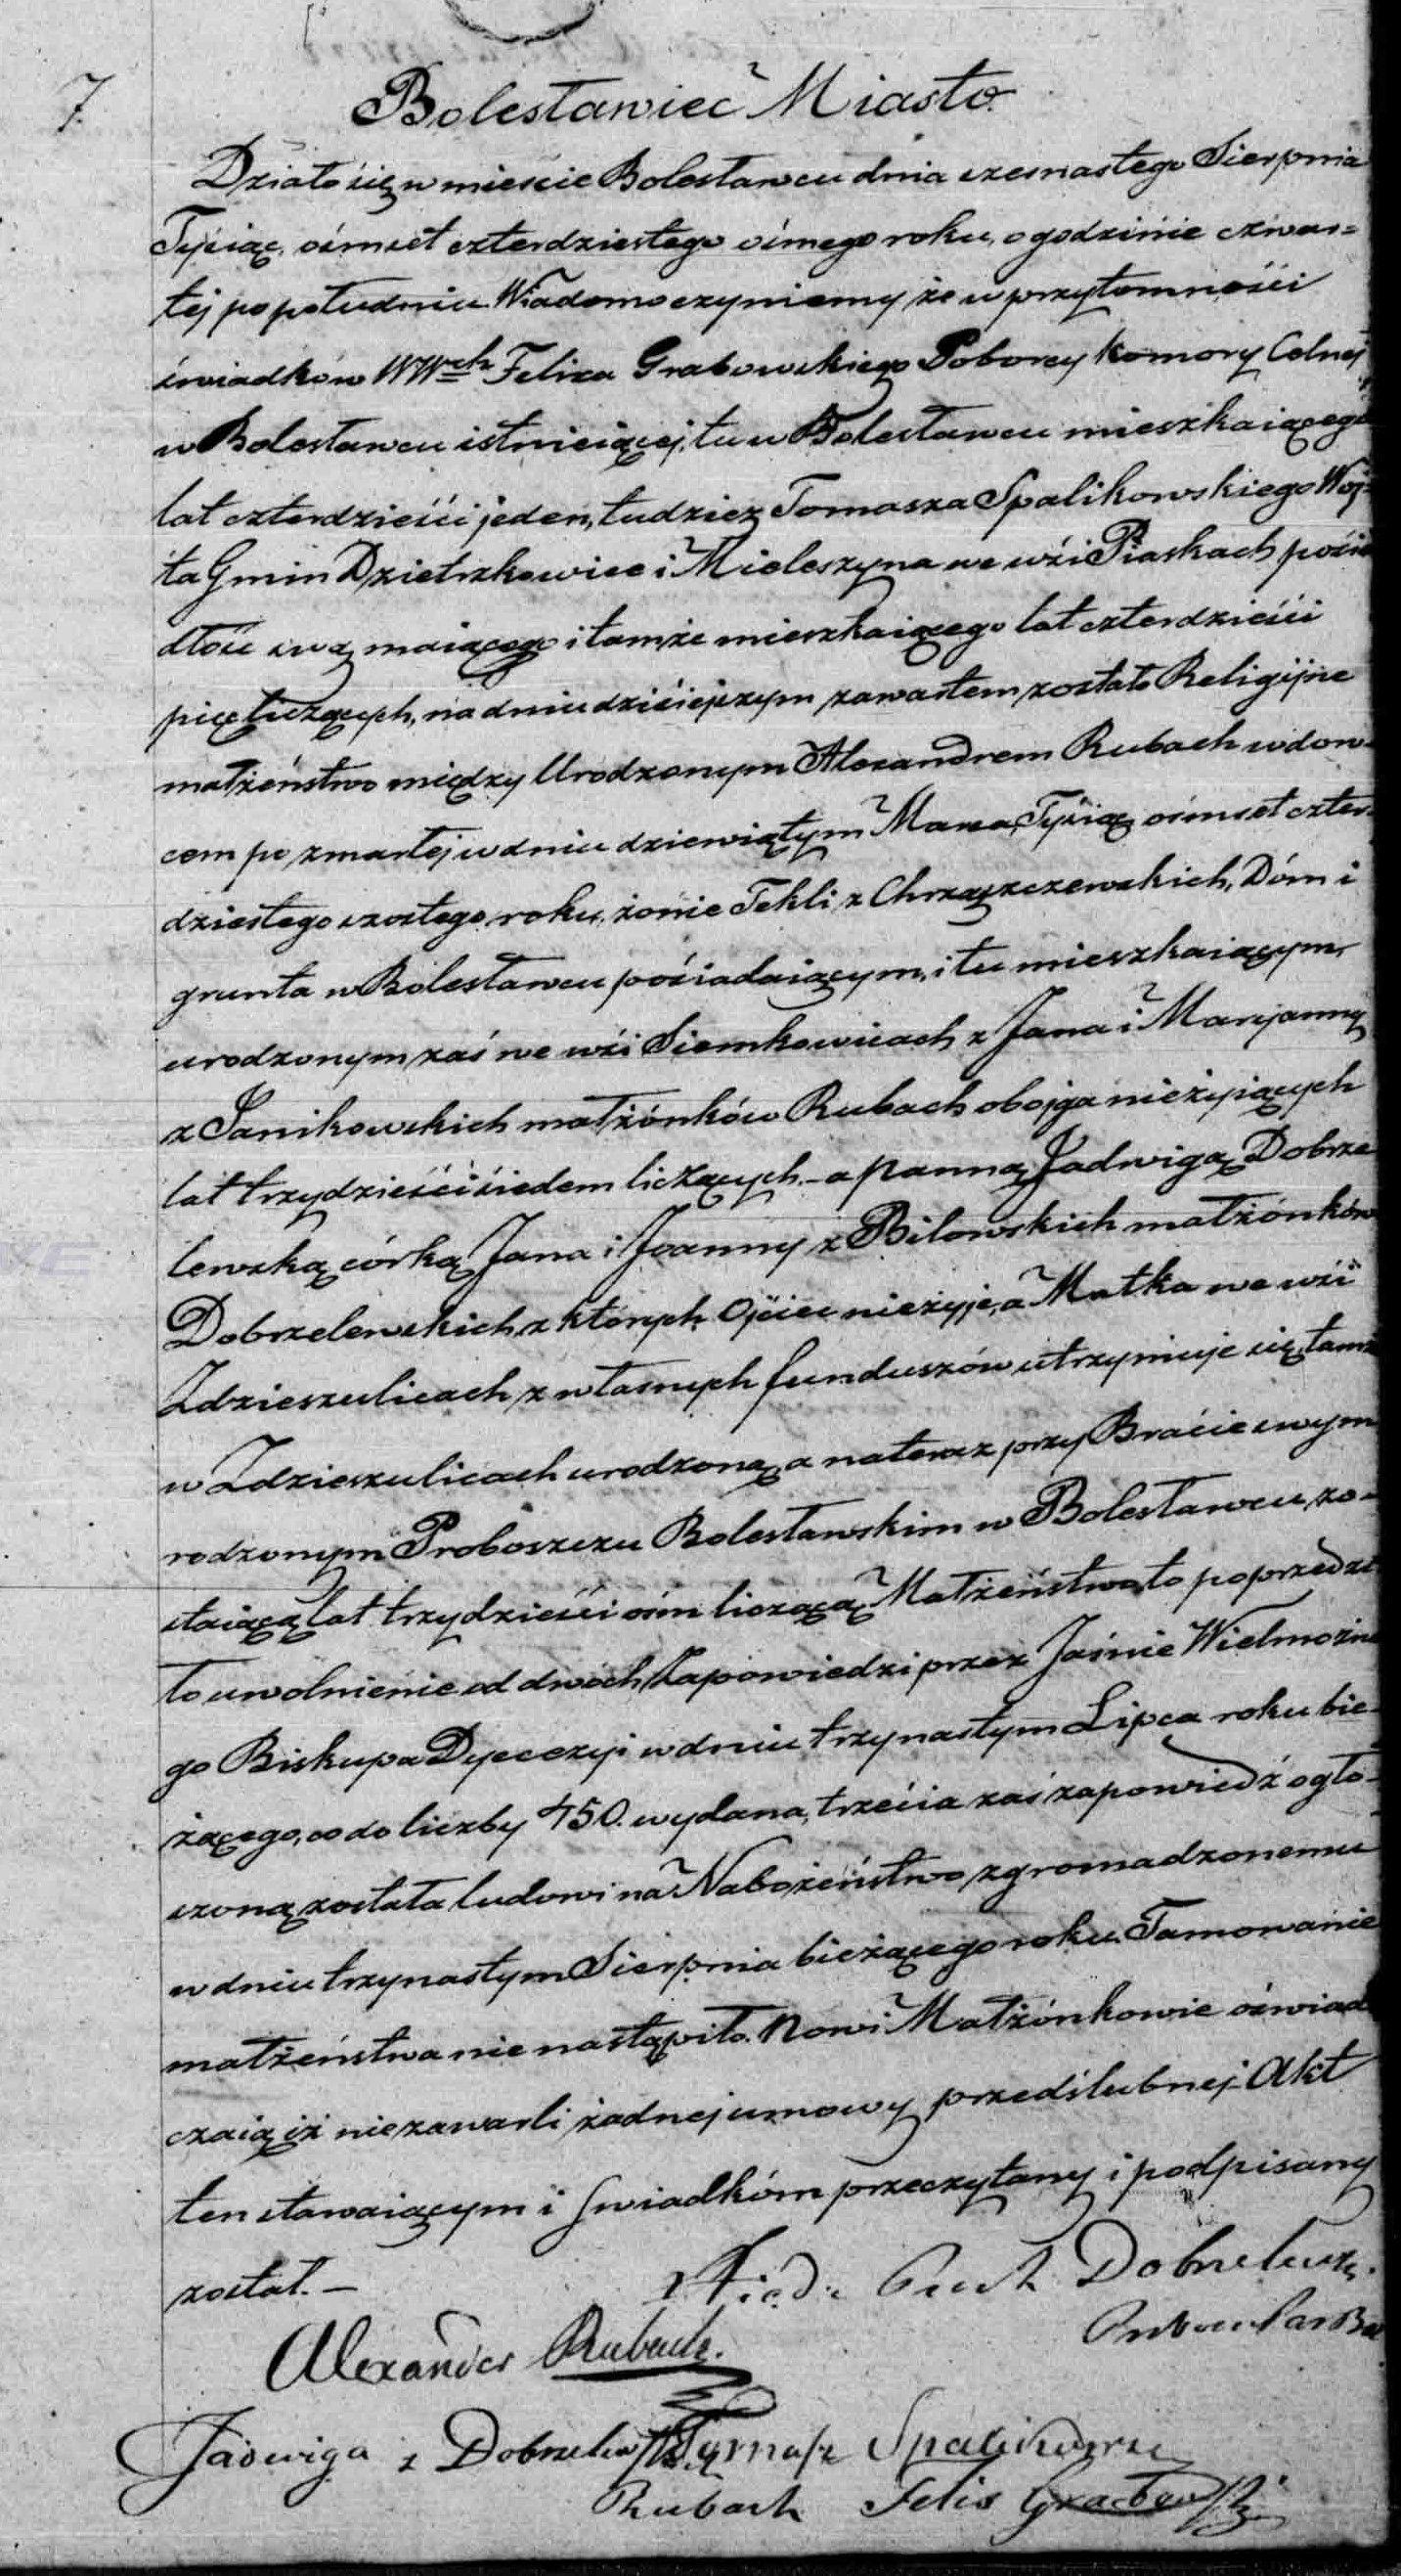 7.
Bolesławiec Miasto.
Działo się w mieście Bolesławcu dnia szesnastego Sierpnia
Tysiąc ośmset czterdziestego ósmego roku, o godzinie czwar=
tej po południu. Wiadomo czyniemy że w przytomności
świadków WWch Felixa Grabowskiego Poborcy Komory Celnej
w Bolesławcu istnieiącej, tu w Bolesławcu mieszkaiącego
lat czterdzieści jeden, tudzież Tomasza Spalikowskiego Woj-
ta Gmin Dzietrzkowice i Mieleszyna we wsi Piaskach posia
dłość swą maiącego i tamże mieszkaiącego lat czterdzieści
pięć liczących, na dniu dzisiejszym zawartem zostało Religijne
małżeństwo między Urodzonym Alexandrem Rubach wdow-
cem po zmarłej w dniu dziewiątym Marca Tysiąc ośmset czter-
dziestego szóstego roku, żonie Tekli z Chrząszczewskich, Dóm i
grunta w Bolesławcu posiadaiącym, i tu mieszkaiącym,
urodzonym zaś we wsi Siemkowicach z Jana i Maryanny
z Sanikowskich małżonków Rubach obojga nieżyiących
lat trzydzieści siedem liczących - a panną Jadwigą Dobrze
lewską córką Jana i Joanny z Bilowskich małżónków
Dobrzelewskich, z których Ojciec nieżyje, a Matka we wsi
Zdzieszulicach z własnych funduszów utrzymuje się, tamże
w Zdzieszulicach urodzoną, a nateraz przy Bracie swym
rodzonym Proboszczu Bolesławskim w Bolesławcu zo-
staiącą lat trzydzieści ośm liczącą. Małżeństwo to poprzedzi
ło uwolnienie od dwóch Zapowiedzi przez Jaśnie Wielmożne
go Biskupa Dyecezyi w dniu trzynastym Lipca roku bie-
żącego, co do liczby 450. wydana, trzecia zaś zapowiedź ogło-
szoną została ludowi na Nabożeństwo zgromadzonemu
w dniu trzynastym Sierpnia bieżącego roku. Tamowanie
małżeństwa nie nastąpiło. Nowi Małżónkowie oświad
czaią iż nie zawarli żadnej umowy przedślubnej. Akt
ten stawaiącym i świadkóm przeczytany i podpisany
został. —
Dobrzelewski
Alexander Rubach.
Jadwiga z Dobrzelewskich Tomasz Spalikowski
Rubach Felix Grabowski